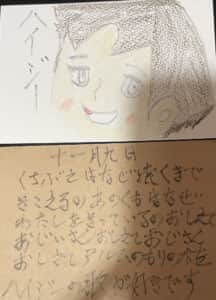 ハイジー
十一月九日
くちぶえはなぜ遠くまで
きこえるのあのくもはなぜ
わたしをまっているのおしえて
おじいさんおしえておじいさん
おしえてアルムのもりの木
ハイジーの歌が好きです